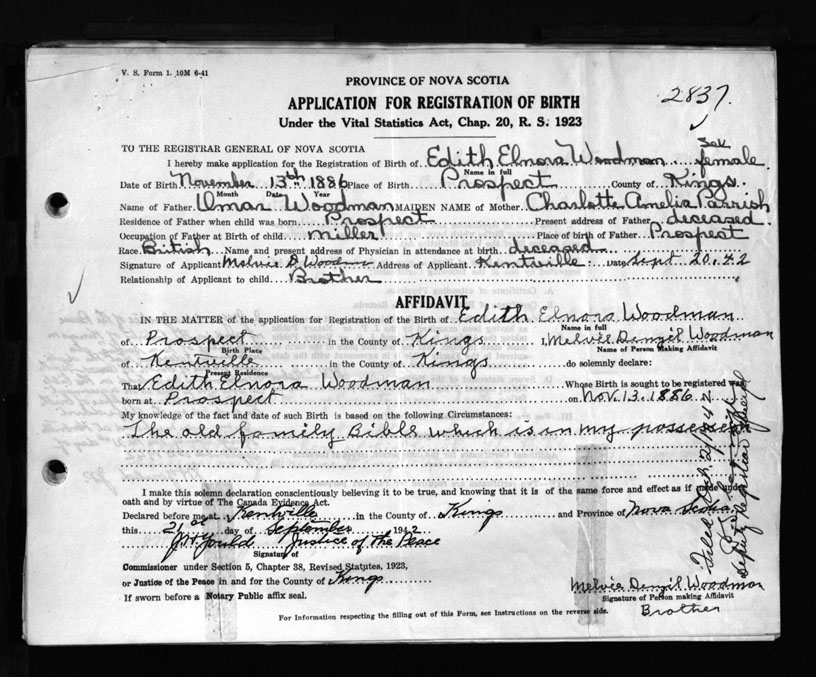 V. S. Form 1. 10M 6-41
PROVINCE OF NOVA SCOTIA
2837.
APPLICATION FOR REGISTRATION OF BIRTH
Under the Vital Statistics Act, Chap. 20, R. S. 1923
TO THE REGISTRAR GENERAL OF NOVA SCOTIA
Sex
I hereby make application for Registration of Birth of Edith Elnora Woodman female
Name in full
Date of Birth November 13th 1886 Place of Birth Prospect County of Kings
Month Date Year
Name of Father Omar Woodman MAIDEN NAME of Mother Charlotte Amelia Parrish
Residence of Father when child was born Prospect Present address of Father deceased
Occupation of Father at Birth of child miller Place of birth of Father Prospect
Race British Name and present address of Physician in attendance at birth deceased
Signature of Applicant Melvie D. Woodman Address of Applicant Kentville Date Sept 20.42
Relationship of Applicant to child Brother
AFFIDAVIT
IN THE MATTER of the application for Registration of the Birth of Edith Elnora Woodman
Name in full
of Prospect in the County of Kings I, Melvie Denzil Woodman
Birth Place Name of Person Making Affidavit
of Kentville in the County of Kings do solemnly declare:
Present Residence
That Edith Elnora Woodman Whose Birth is sought to be registered was
born at Prospect on Nov. 13. 1886
My knowledge of the fact and date of such Birth is based on the following Circumstances:
The old family Bible which is in my possession
I make this solemn declaration conscientiously believing it to be true, and knowing that it is of the same force and effect as if made under
oath and by virtue of The Canada Evidence Act.
Declared before me at Kentville in the County of Kings and Province of Nova Scotia
this 21st day of September 1942
Justice of the Peace
Signature of
Commissioner under Section 5, Chapter 38, Revised Statutes, 1923,
or Justice of the Peace in and for the County of Kings
If sworn before a Notary Public affix seal.
Melvie Denzil Woodman
Signature of Person making Affidavit
Brother
For Information respecting the filling out of this Form, see Instructions on the reverse side.
Filed
Deputy Registrar General